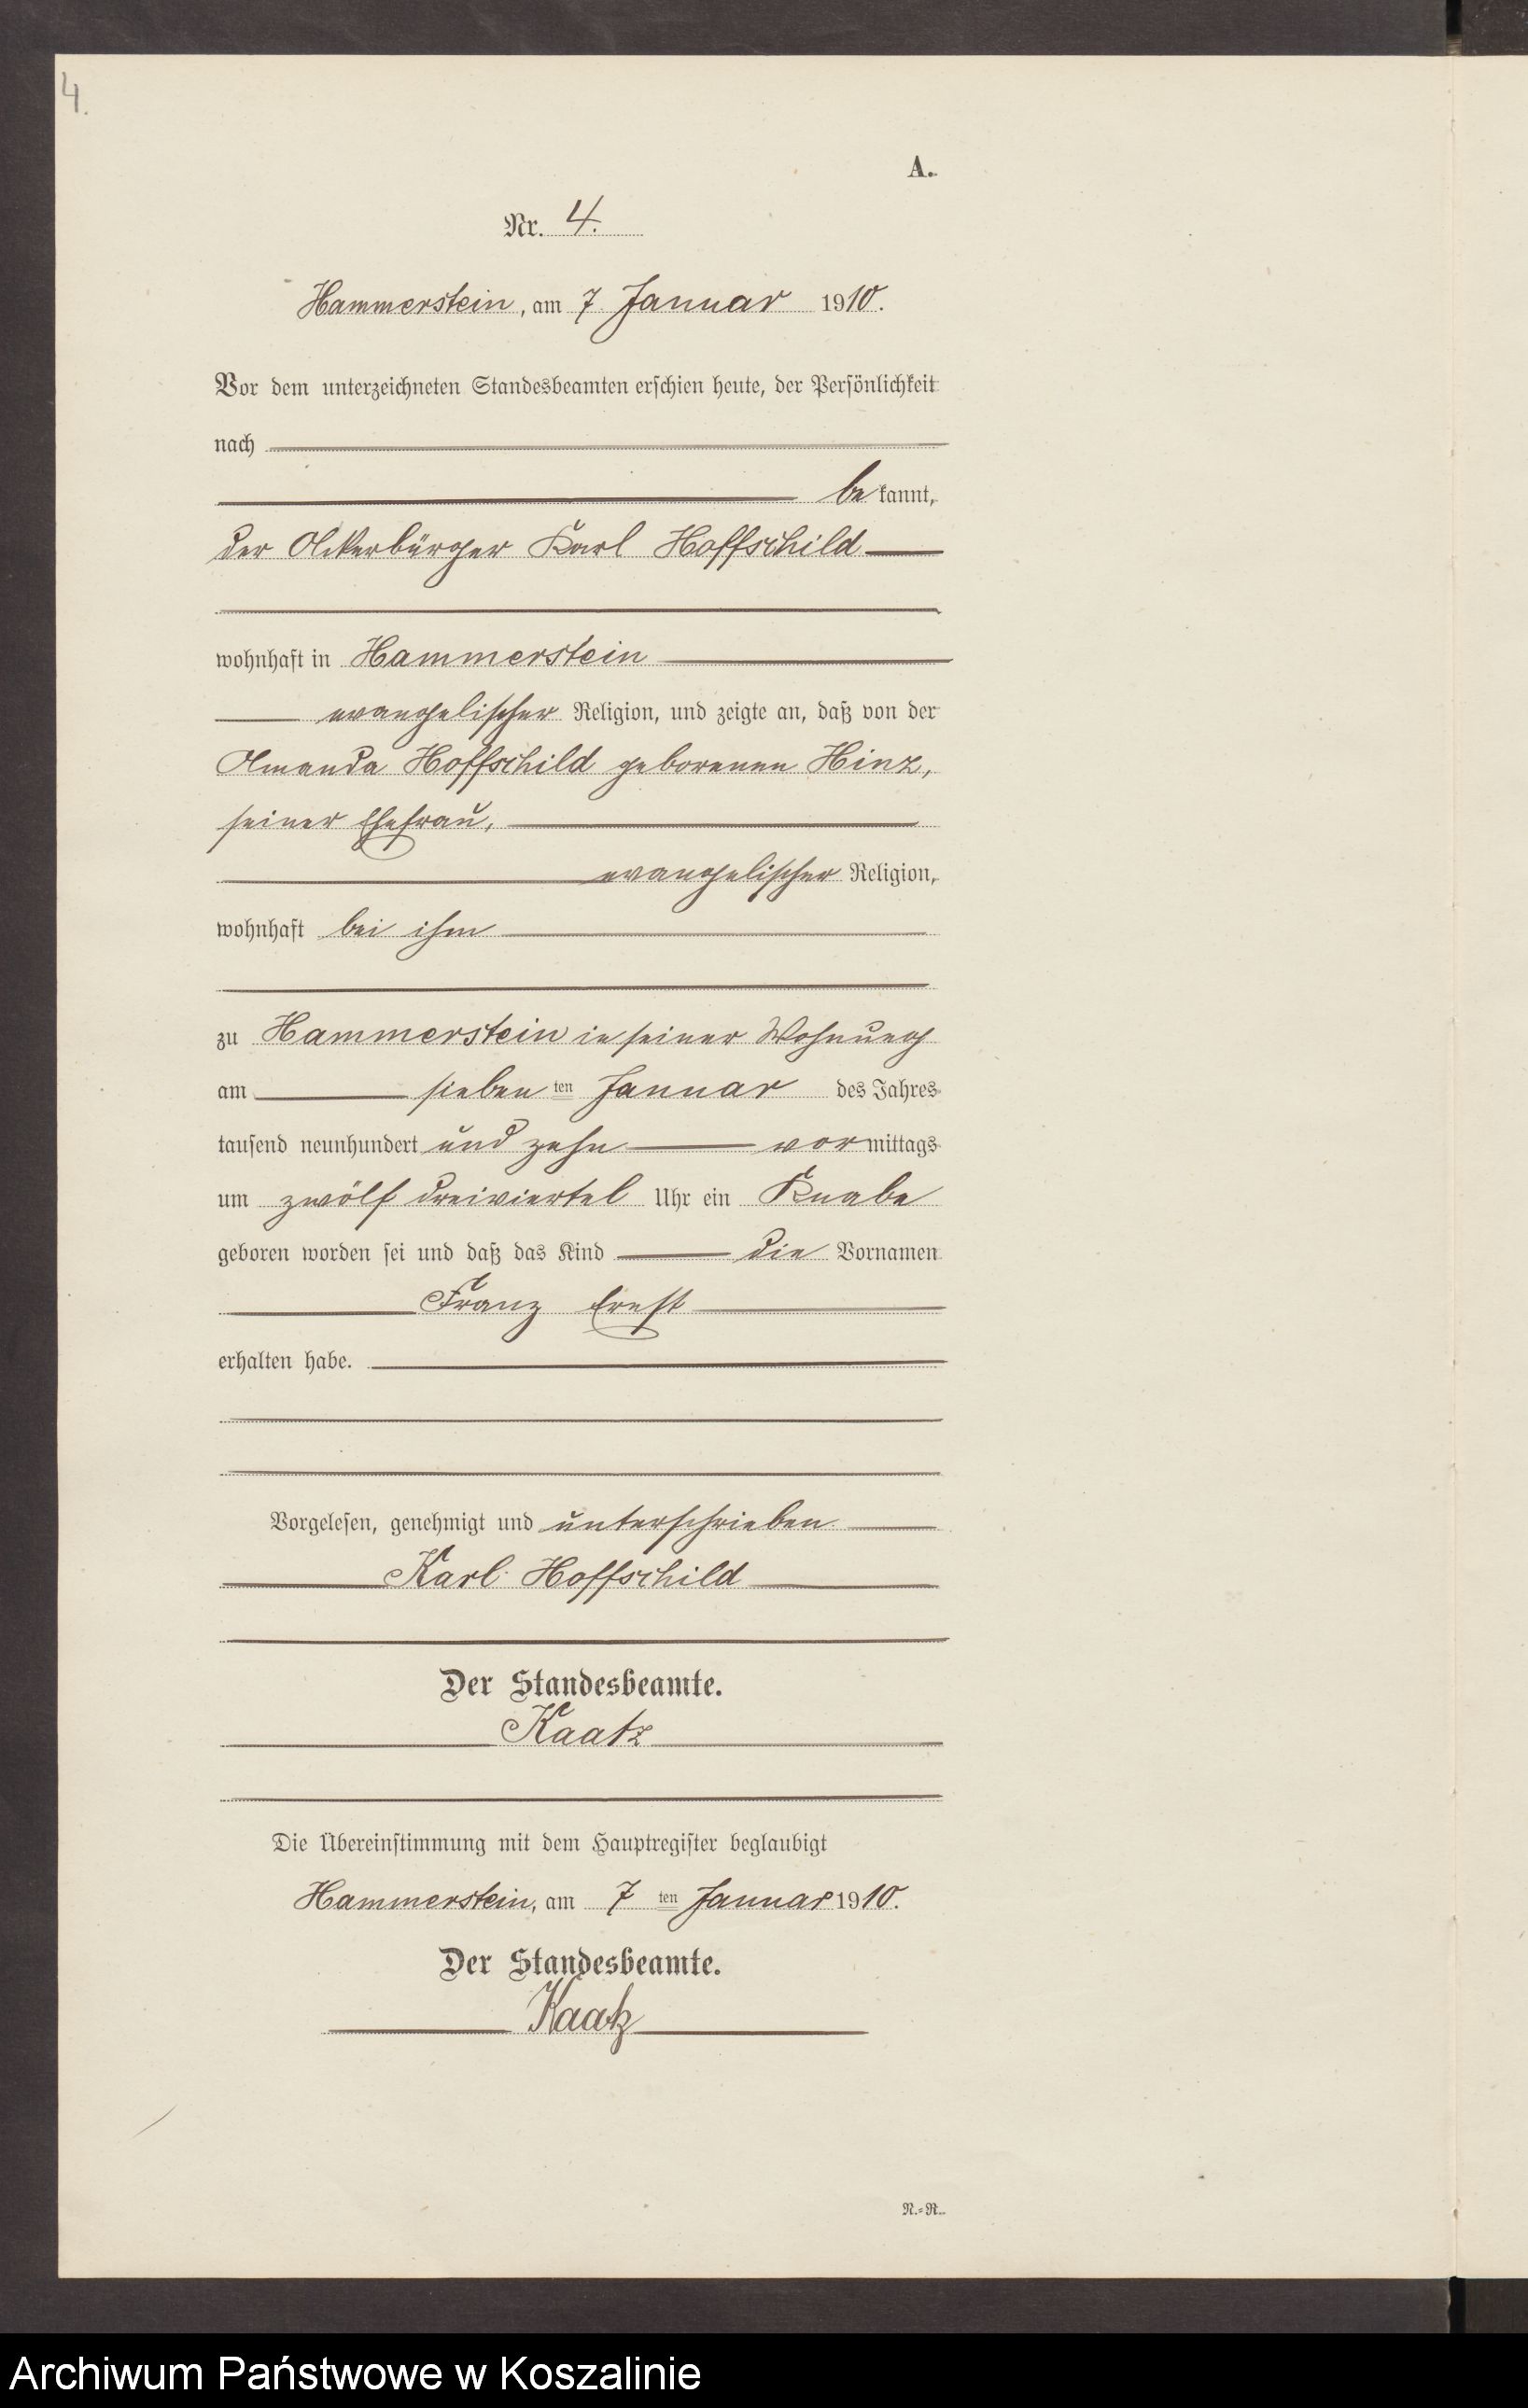 4.
A.
Nr. 4.
Hammerstein, am 7. Januar 1910.
Vor dem unterzeichneten Standesbeamten erschien heute, der Persönlichkeit
nach
bekannt,
der Ackerbürger Karl Hoffschild
wohnhaft in Hammerstein
evangelischer Religion, und zeigte an, daß von der
Amanda Hoffschild geborenen Hinz,
seiner Ehefrau,
evangelischer Religion,
wohnhaft bei ihm
zu Hammerstein in seiner Wohnung
am sieben ten Januar des Jahres
tausend neunhundert und zehn vormittags
um zwölf dreiviertel Uhr ein Knabe
geboren worden sei und daß das Kind die Vornamen
Franz Ernst
erhalten habe.
Vorgelesen, genehmigt und unterschrieben
Karl Hoffschild
Der Standesbeamte.
Kaatz
Die Übereinstimmung mit dem Hauptregister beglaubigt
Hammerstein, am 7 ten Januar 1910.
Der Standesbeamte.
Kaatz
N.=R.
Archiwum Państwowe w Koszalinie